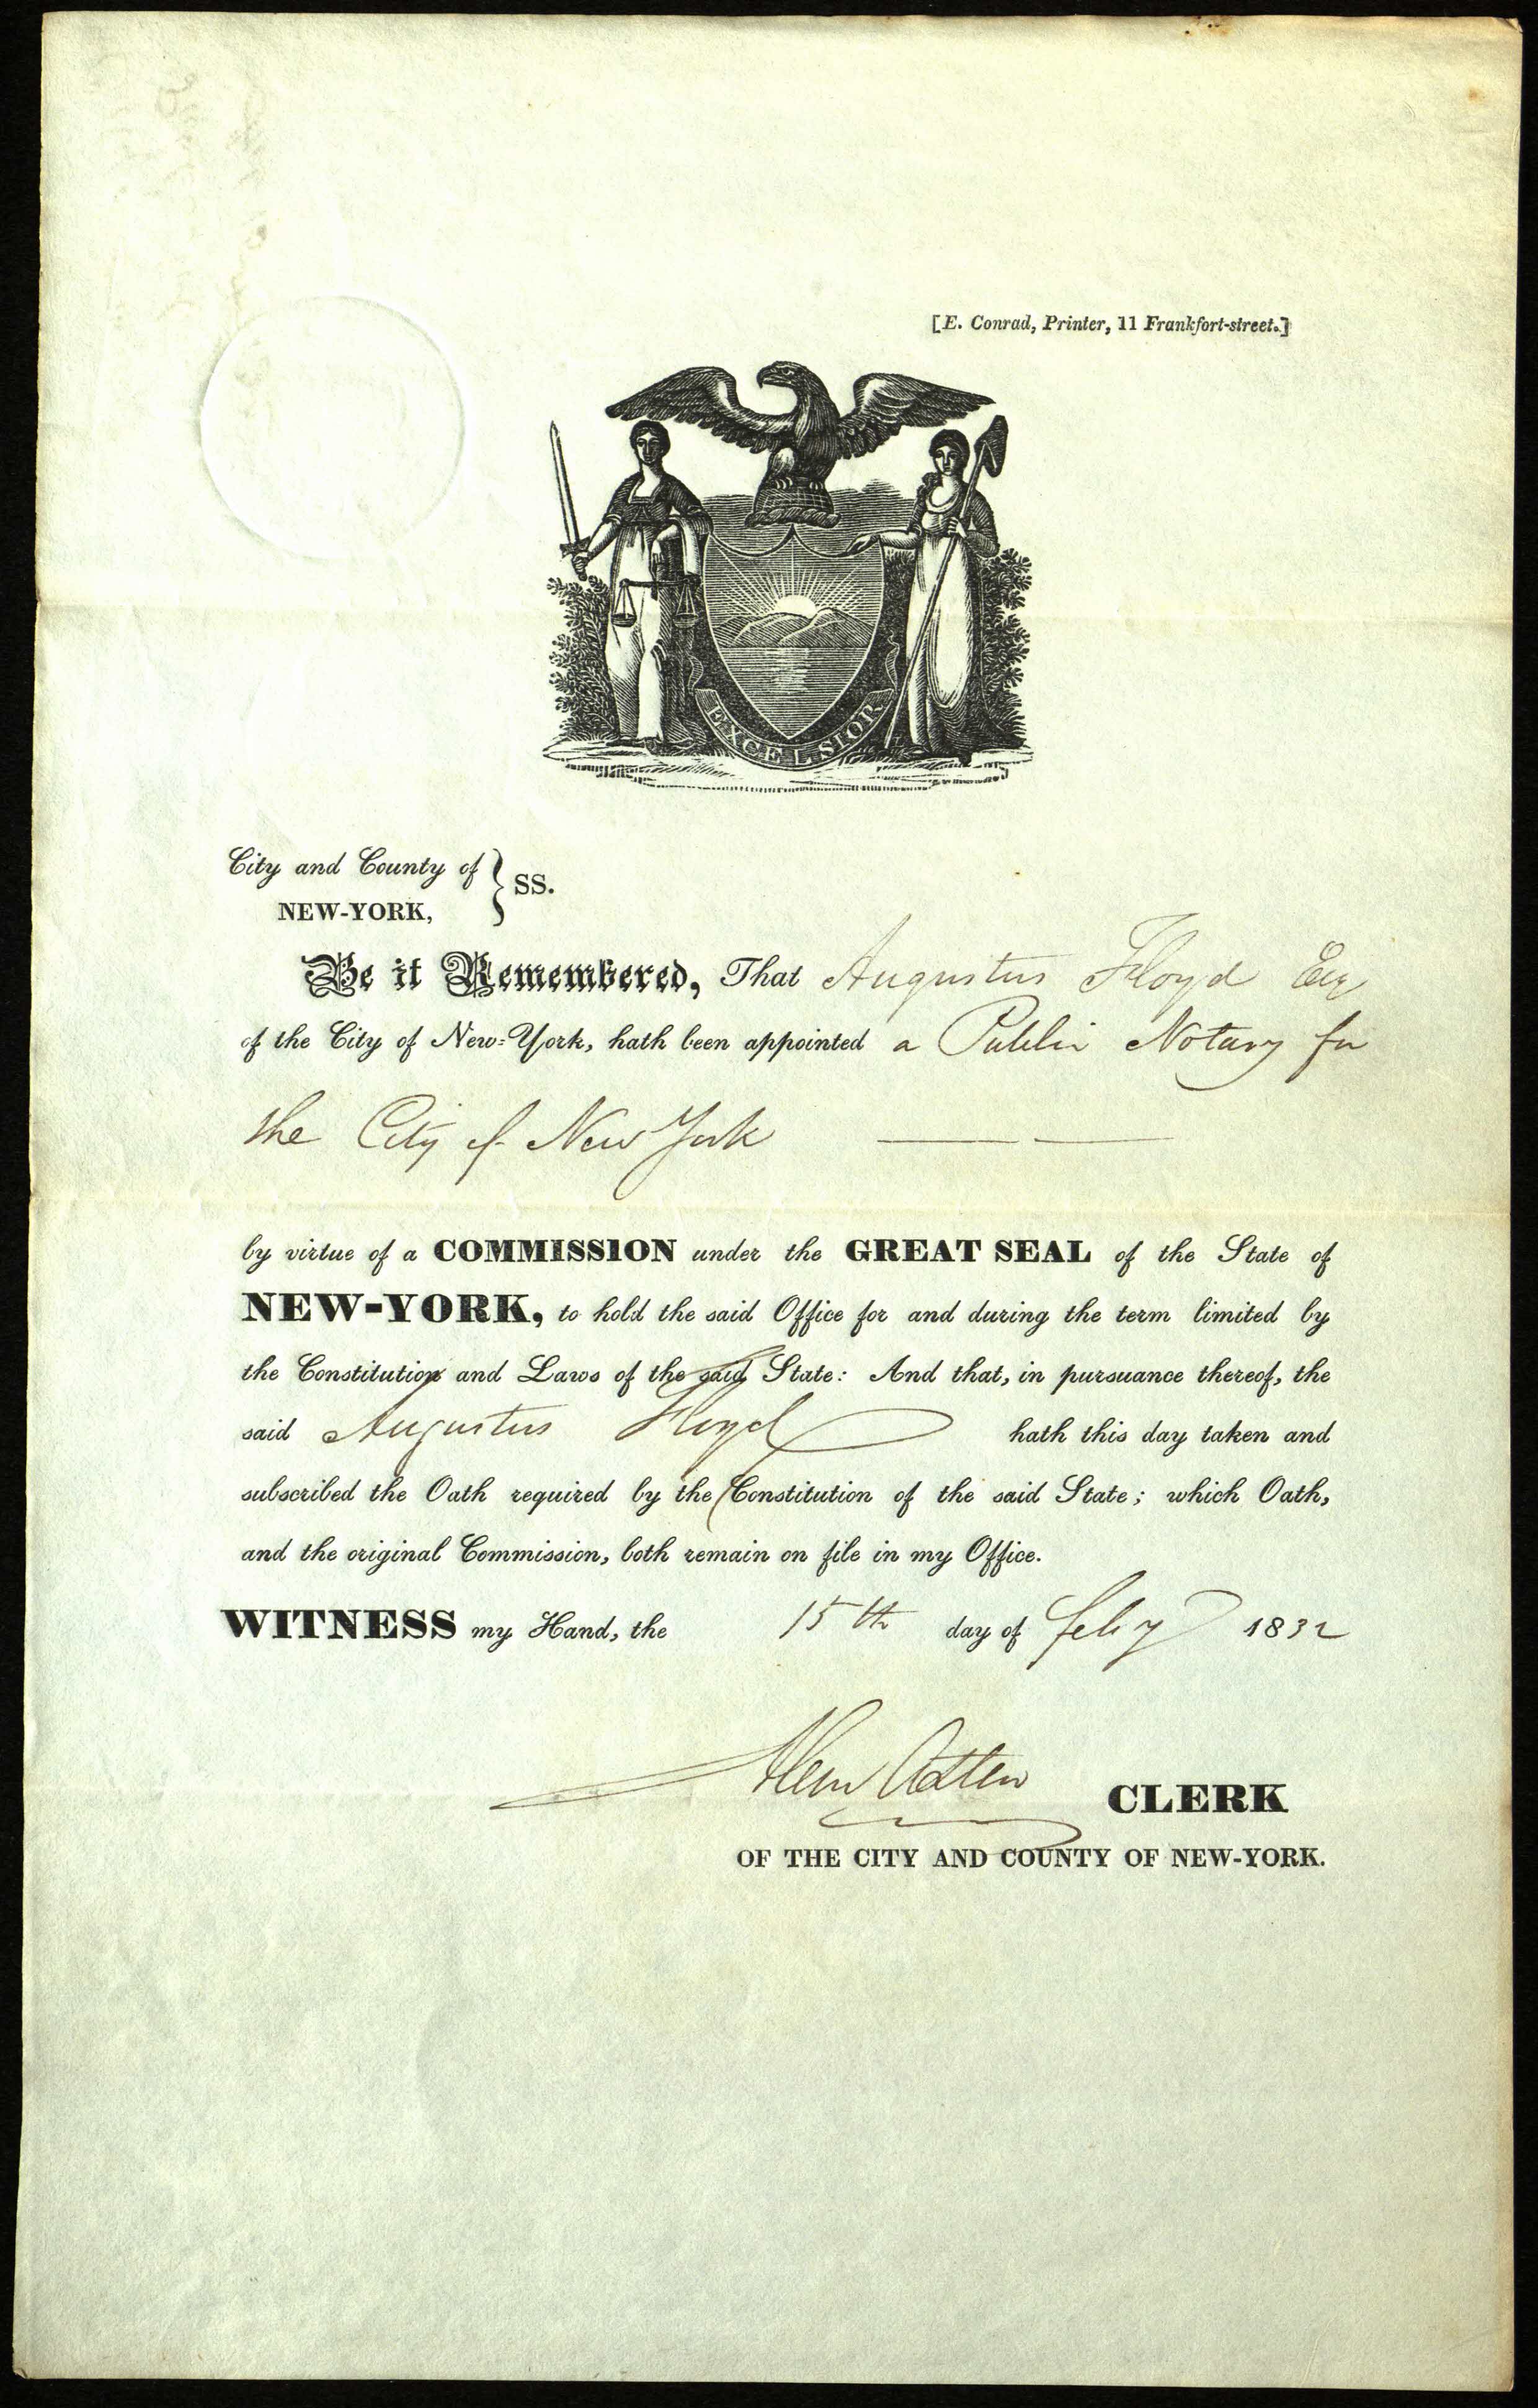 [E. Conrad, Printer, 11 Frankfort-street.]
EXCELSIOR
City and County of
NEW-YORK, } SS.
Be it Remembered, That Augustus Floyd Esq
of the City of New-York, hath been appointed a Public Notary for
the City of New York
by virtue of a COMMISSION under the GREAT SEAL of the State of
NEW-YORK, to hold the said Office for and during the term limited by
the Constitution and Laws of the said State: And that, in pursuance thereof, the
said Augustus Floyd hath this day taken and
subscribed the Oath required by the Constitution of the said State; which Oath,
and the original Commission, both remain on file in my Office.
WITNESS my Hand, the 15th day of Feby 1832
CLERK
OF THE CITY AND COUNTY OF NEW-YORK.